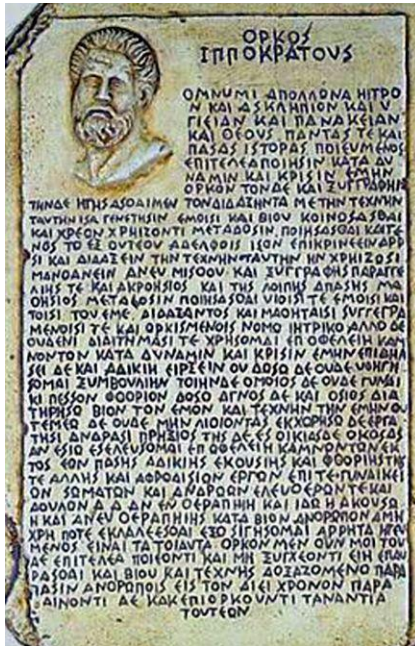 ΟΡΚΟΣ
ΙΠΠΟΚΡΑΤΟΥΣ
ΟΜΝΥΜΙ ΑΠΟΛΛΩΝΑ ΙΗΤΡΟ
Ν ΚΑΙ ΑΣΚΛΗΠΙΟΝ ΚΑΙ Υ
ΓΙΕΙΑΝ ΚΑΙ ΠΑΝΑΚΕΙΑΝ
ΚΑΙ ΘΕΟΥΣ ΠΑΝΤΑΣ ΤΕ ΚΑΙ
ΠΑΣΑΣ ΙΣΤΟΡΑΣ ΠΟΙΕΥΜΕΝΟΣ
ΕΠΙΤΕΛΕΑ ΠΟΙΗΣΙΝ ΚΑΤΑ ΔΥ
ΝΑΜΙΝ ΚΑΙ ΚΡΙΣΙΝ ΕΜΗΝ
ΟΡΚΟΝ ΤΟΝΔΕ ΚΑΙ ΞΥΓΓΡΑΦΗΝ
ΤΗΝΔΕ ΗΓΗΣΑΣΘΑΙ ΜΕΝ ΤΟΝ ΔΙΔΑΞΑΝΤΑ ΜΕ ΤΗΝ ΤΕΧΝΗΝ
ΤΑΥΤΗΝ ΙΣΑ ΓΕΝΕΤΗΣΙΝ ΕΜΟΙΣΙ ΚΑΙ ΒΙΟΥ ΚΟΙΝΩΣΑΣΘΑΙ
ΚΑΙ ΧΡΕΩΝ ΧΡΗΙΖΟΝΤΙ ΜΕΤΑΔΟΣΙΝ ΠΟΙΗΣΑΣΘΑΙ ΚΑΙ ΓΕ
ΝΟΣ ΤΟ ΕΞ ΩΥΤΕΟΥ ΑΔΕΛΦΟΙΣ ΙΣΟΝ ΕΠΙΚΡΙΝΕΕΙΝ ΑΡΡΕ
ΣΙ ΚΑΙ ΔΙΔΑΞΕΙΝ ΤΗΝ ΤΕΧΝΗΝ ΤΑΥΤΗΝ ΗΝ ΧΡΗΙΖΩΣΙ
ΜΑΝΘΑΝΕΙΝ ΑΝΕΥ ΜΙΣΘΟΥ ΚΑΙ ΞΥΓΓΡΑΦΗΣ ΠΑΡΑΓΓΕ
ΛΙΗΣ ΤΕ ΚΑΙ ΑΚΡΟΗΣΙΟΣ ΚΑΙ ΤΗΣ ΛΟΙΠΗΣ ΑΠΑΣΗΣ ΜΑ
ΘΗΣΙΟΣ ΜΕΤΑΔΟΣΙΝ ΠΟΙΗΣΑΣΘΑΙ ΥΙΟΙΣΙ ΤΕ ΕΜΟΙΣΙ ΚΑΙ
ΤΟΙΣΙ ΤΟΥ ΕΜΕ ΔΙΔΑΞΑΝΤΟΣ ΚΑΙ ΜΑΘΗΤΑΙΣΙ ΣΥΓΓΕΓΡΑ
ΜΕΝΟΙΣΙ ΤΕ ΚΑΙ ΟΡΚΙΣΜΕΝΟΙΣ ΝΟΜΩ ΙΗΤΡΙΚΩ ΑΛΛΩ ΔΕ
ΟΥΔΕΝΙ ΔΙΑΙΤΗΜΑΣΙ ΤΕ ΧΡΗΣΟΜΑΙ ΕΠ ΩΦΕΛΕΙΗ ΚΑΜ
ΝΟΝΤΩΝ ΚΑΤΑ ΔΥΝΑΜΙΝ ΚΑΙ ΚΡΙΣΙΝ ΕΜΗΝ ΕΠΙ ΔΗΛΗ
ΣΕΙ ΔΕ ΚΑΙ ΑΔΙΚΙΗ ΕΙΡΞΕΙΝ ΟΥ ΔΩΣΩ ΔΕ ΟΥΔΕ ΥΦΗΓΗ
ΣΟΜΑΙ ΞΥΜΒΟΥΛΙΗΝ ΤΟΙΗΝΔΕ ΟΜΟΙΩΣ ΔΕ ΟΥΔΕ ΓΥΝΑΙ
ΚΙ ΠΕΣΣΟΝ ΦΘΟΡΙΟΝ ΔΩΣΩ ΑΓΝΩΣ ΔΕ ΚΑΙ ΟΣΙΩΣ ΔΙΑ
ΤΗΡΗΣΩ ΒΙΟΝ ΤΟΝ ΕΜΟΝ ΚΑΙ ΤΕΧΝΗΝ ΤΗΝ ΕΜΗΝ ΟΥ
ΤΕΜΕΩ ΔΕ ΟΥΔΕ ΜΗΝ ΛΙΘΙΩΝΤΑΣ ΕΚΧΩΡΗΣΩ ΔΕ ΕΡΓΑ
ΤΗΣΙ ΑΝΔΡΑΣΙ ΠΡΗΞΙΟΣ ΤΗΣΔΕ ΕΣ ΟΙΚΙΑΣ ΔΕ ΟΚΟΣΑΣ
ΑΝ ΕΣΙΩ ΕΣΕΛΕΥΣΟΜΑΙ ΕΠ ΩΦΕΛΕΙΗ ΚΑΜΝΟΝΤΩΝ ΕΚ
ΤΟΣ ΕΩΝ ΠΑΣΗΣ ΑΔΙΚΙΗΣ ΕΚΟΥΣΙΗΣ ΚΑΙ ΦΘΟΡΙΗΣ ΤΗΣ
ΤΕ ΑΛΛΗΣ ΚΑΙ ΑΦΡΟΔΙΣΙΩΝ ΕΡΓΩΝ ΕΠΙ ΤΕ ΓΥΝΑΙΚΕΙ
ΩΝ ΣΩΜΑΤΩΝ ΚΑΙ ΑΝΔΡΩΩΝ ΕΛΕΥΘΕΡΩΝ ΤΕ ΚΑΙ
ΔΟΥΛΩΝ Α Δ ΑΝ ΕΝ ΘΕΡΑΠΗΙΗ ΚΑΙ ΙΔΩ Η ΑΚΟΥΣΩ
Η ΚΑΙ ΑΝΕΥ ΘΕΡΑΠΗΙΗΣ ΚΑΤΑ ΒΙΟΝ ΑΝΘΡΩΠΩΝ Α ΜΗ
ΧΡΗ ΠΟΤΕ ΕΚΛΑΛΕΕΣΘΑΙ ΕΞΩ ΣΙΓΗΣΟΜΑΙ ΑΡΡΗΤΑ ΗΓΕΥ
ΜΕΝΟΣ ΕΙΝΑΙ ΤΑ ΤΟΙΑΥΤΑ ΟΡΚΟΝ ΜΕΝ ΟΥΝ ΜΟΙ ΤΟΝ
ΔΕ ΕΠΙΤΕΛΕΑ ΠΟΙΕΟΝΤΙ ΚΑΙ ΜΗ ΞΥΓΧΕΟΝΤΙ ΕΙΗ ΕΠΑΥ
ΡΑΣΘΑΙ ΚΑΙ ΒΙΟΥ ΚΑΙ ΤΕΧΝΗΣ ΔΟΞΑΖΟΜΕΝΩ ΠΑΡΑ
ΠΑΣΙΝ ΑΝΘΡΩΠΟΙΣ ΕΙΣ ΤΟΝ ΑΙΕΙ ΧΡΟΝΟΝ ΠΑΡΑ
ΒΑΙΝΟΝΤΙ ΔΕ ΚΑΙ ΕΠΙΟΡΚΟΥΝΤΙ ΤΑΝΑΝΤΙΑ
ΤΟΥΤΕΩΝ